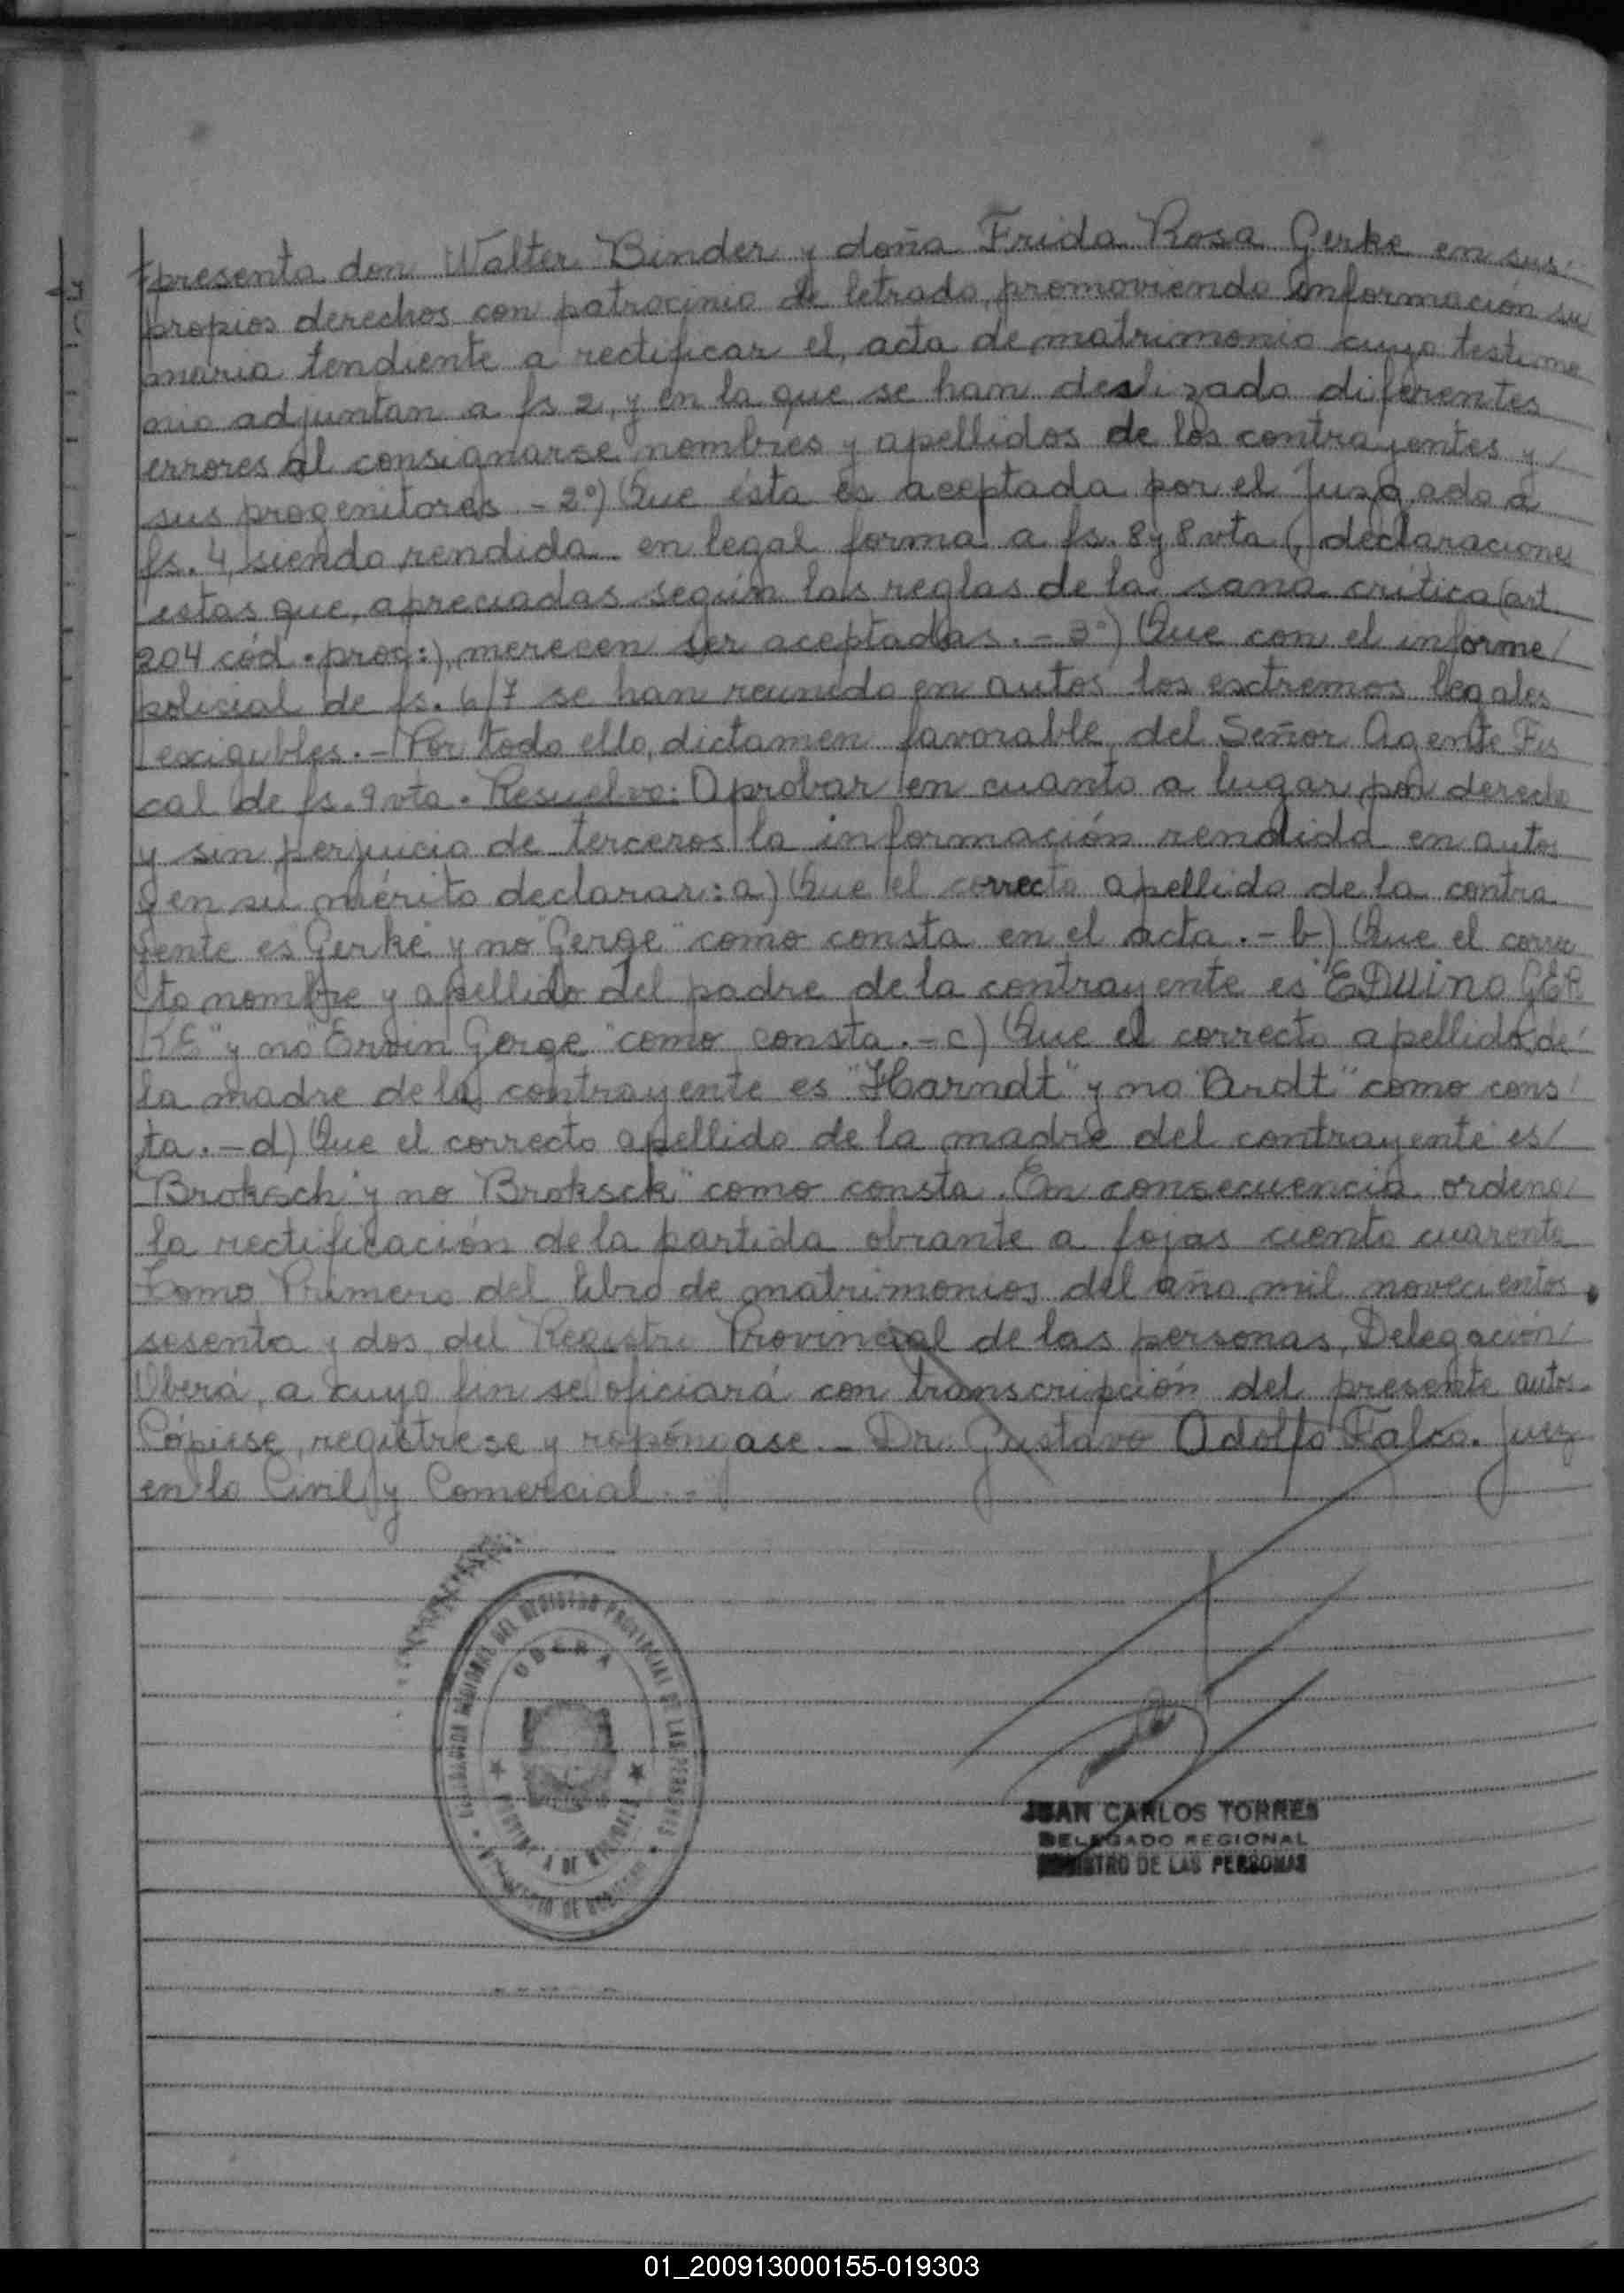 presenta don Walter Binder y doña Frida Rosa Gerke en sus
propios derechos con patrocinio de letrado, promoviendo información su
maria tendiente a rectificar el acta de matrimonio cuyo testimo
nio adjuntan a fs 2, y en la que se han deslizado diferentes
errores al consignarse nombres y apellidos de los contrayentes y/
sus progenitores - 2º) Que ésta es aceptada por el Juzgado a
fs. 4, siendo rendida en legal forma a fs. 8 y 8 vta, declaraciones
estas que, apreciadas según las reglas de la sana crítica (art.
204 cód. proc:), merecen ser aceptadas. - 3º) Que con el informe/
policial de fs. 6/7 se han reunido en autos los extremos legales
exigibles. - Por todo ello, dictamen favorable del Señor Agente Fis
cal de fs. 9 vta. Resuelvo: Aprobar en cuanto a lugar por derecho
y sin perjuicio de terceros la información rendida en autos
y en su mérito declarar: a) Que el correcto apellido de la contra
yente es "Gerke" y no "Gerge" como consta en el acta. - b) Que el correc
to nombre y apellido del padre de la contrayente es "EDUino GER
KE" y no "Ervin Gerge" como consta. - c) Que el correcto apellido de
la madre de la contrayente es "Harndt" y no "Ardt" como cons/
ta. - d) Que el correcto apellido de la madre del contrayente es/
"Broksch" y no "Broksck" como consta. En consecuencia ordeno/
la rectificación de la partida obrante a fojas ciento cuarenta
Tomo Primero del libro de matrimonios del año mil novecientos
sesenta y dos del Registro Provincial de las personas, Delegación/
Oberá, a cuyo fin se oficiará con transcripción del presente auto.
Cópiese, regístrese y repóngase. - Dr. Gustavo Adolfo Falco. Juez
en lo Civil y Comercial. -
DEL REGISTRO PROVINCIAL DE LAS PERSONAS
OBERA
PROVINCIA DE MISIONES
JUAN CARLOS TORRES
DELEGADO REGIONAL
REGISTRO DE LAS PERSONAS
01_200913000155-019303